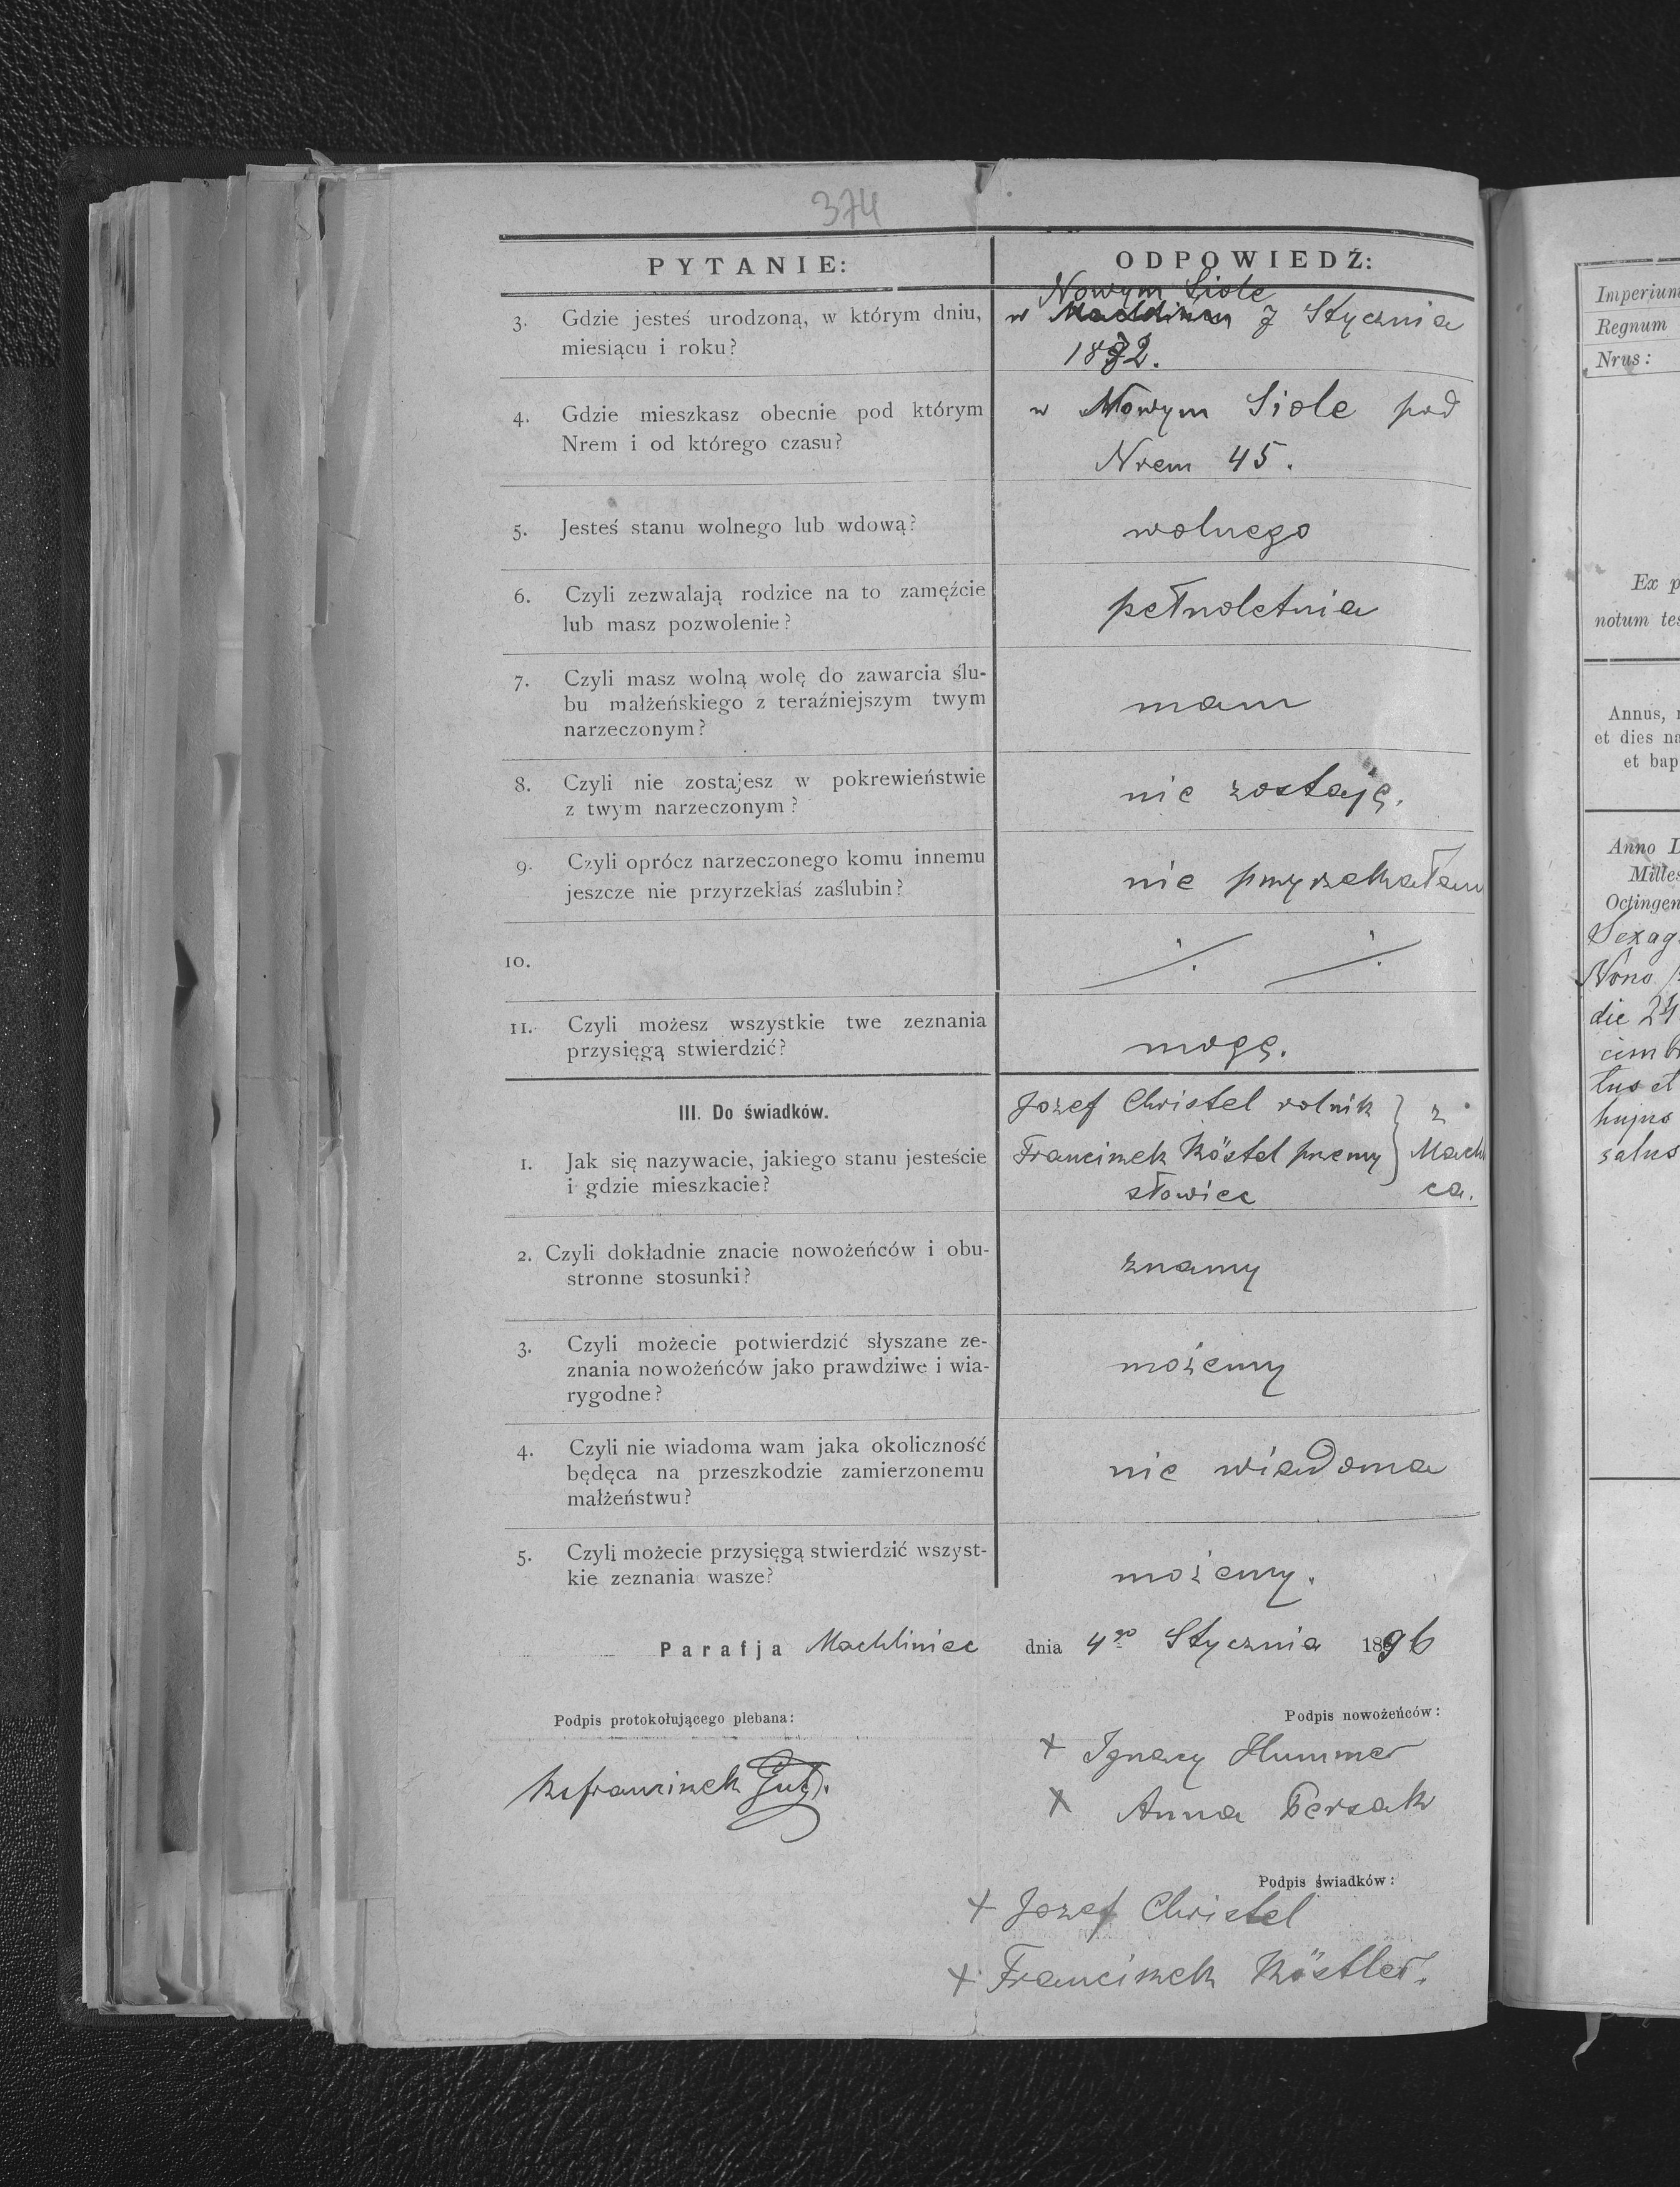 374
PYTANIE:
ODPOWIEDŹ:
3. Gdzie jesteś urodzoną, w którym dniu,
miesiącu i roku?
Nowym Siole
w 7 Stycznia
1872.
4. Gdzie mieszkasz obecnie pod którym
Nrem i od którego czasu?
w Nowym Siole pod
Nrem 45.
5. Jesteś stanu wolnego lub wdową?
wolnego
6. Czyli zezwalają rodzice na to zamęźcie
lub masz pozwolenie?
pełnoletnia
7. Czyli masz wolną wolę do zawarcia ślu-
bu małżeńskiego z teraźniejszym twym
narzeczonym?
mam
8. Czyli nie zostajesz w pokrewieństwie
z twym narzeczonym?
nie zostaję.
9. Czyli oprócz narzeczonego komu innemu
jeszcze nie przyrzekłaś zaślubin?
nie przyrzekałam
10.
11. Czyli możesz wszystkie twe zeznania
przysięgą stwierdzić?
mogę.
III. Do świadków.
1. Jak się nazywacie, jakiego stanu jesteście
i gdzie mieszkacie?
Jozef Christel rolnik } z
Franciszek Köstel przemy } Machl
słowiec ca.
2. Czyli dokładnie znacie nowożeńców i obu-
stronne stosunki?
znamy
3. Czyli możecie potwierdzić słyszane ze-
znania nowożeńców jako prawdziwe i wia-
rygodne?
możemy
4. Czyli nie wiadoma wam jaka okoliczność
będęca na przeszkodzie zamierzonemu
małżeństwu?
nie wiadoma
5. Czyli możecie przysięgą stwierdzić wszyst-
kie zeznania wasze?
możemy.
Parafja Machliniec dnia 4go Stycznia 1896
Podpis protokołującego plebana:
Podpis nowożeńców:
+ Ignacy Hummer
+ Anna Bersak
Ks franciszek
Podpis świadków:
+ Jozef Christel
+ Franciszek Köstler.
Imperium
Regnum
Nrus:
Ex p
notum tes
Annus,
et dies na
et bap
Anno
Milles
Octingen
Sexag
Nono
die 24
cemb
tus et
hujus
salus